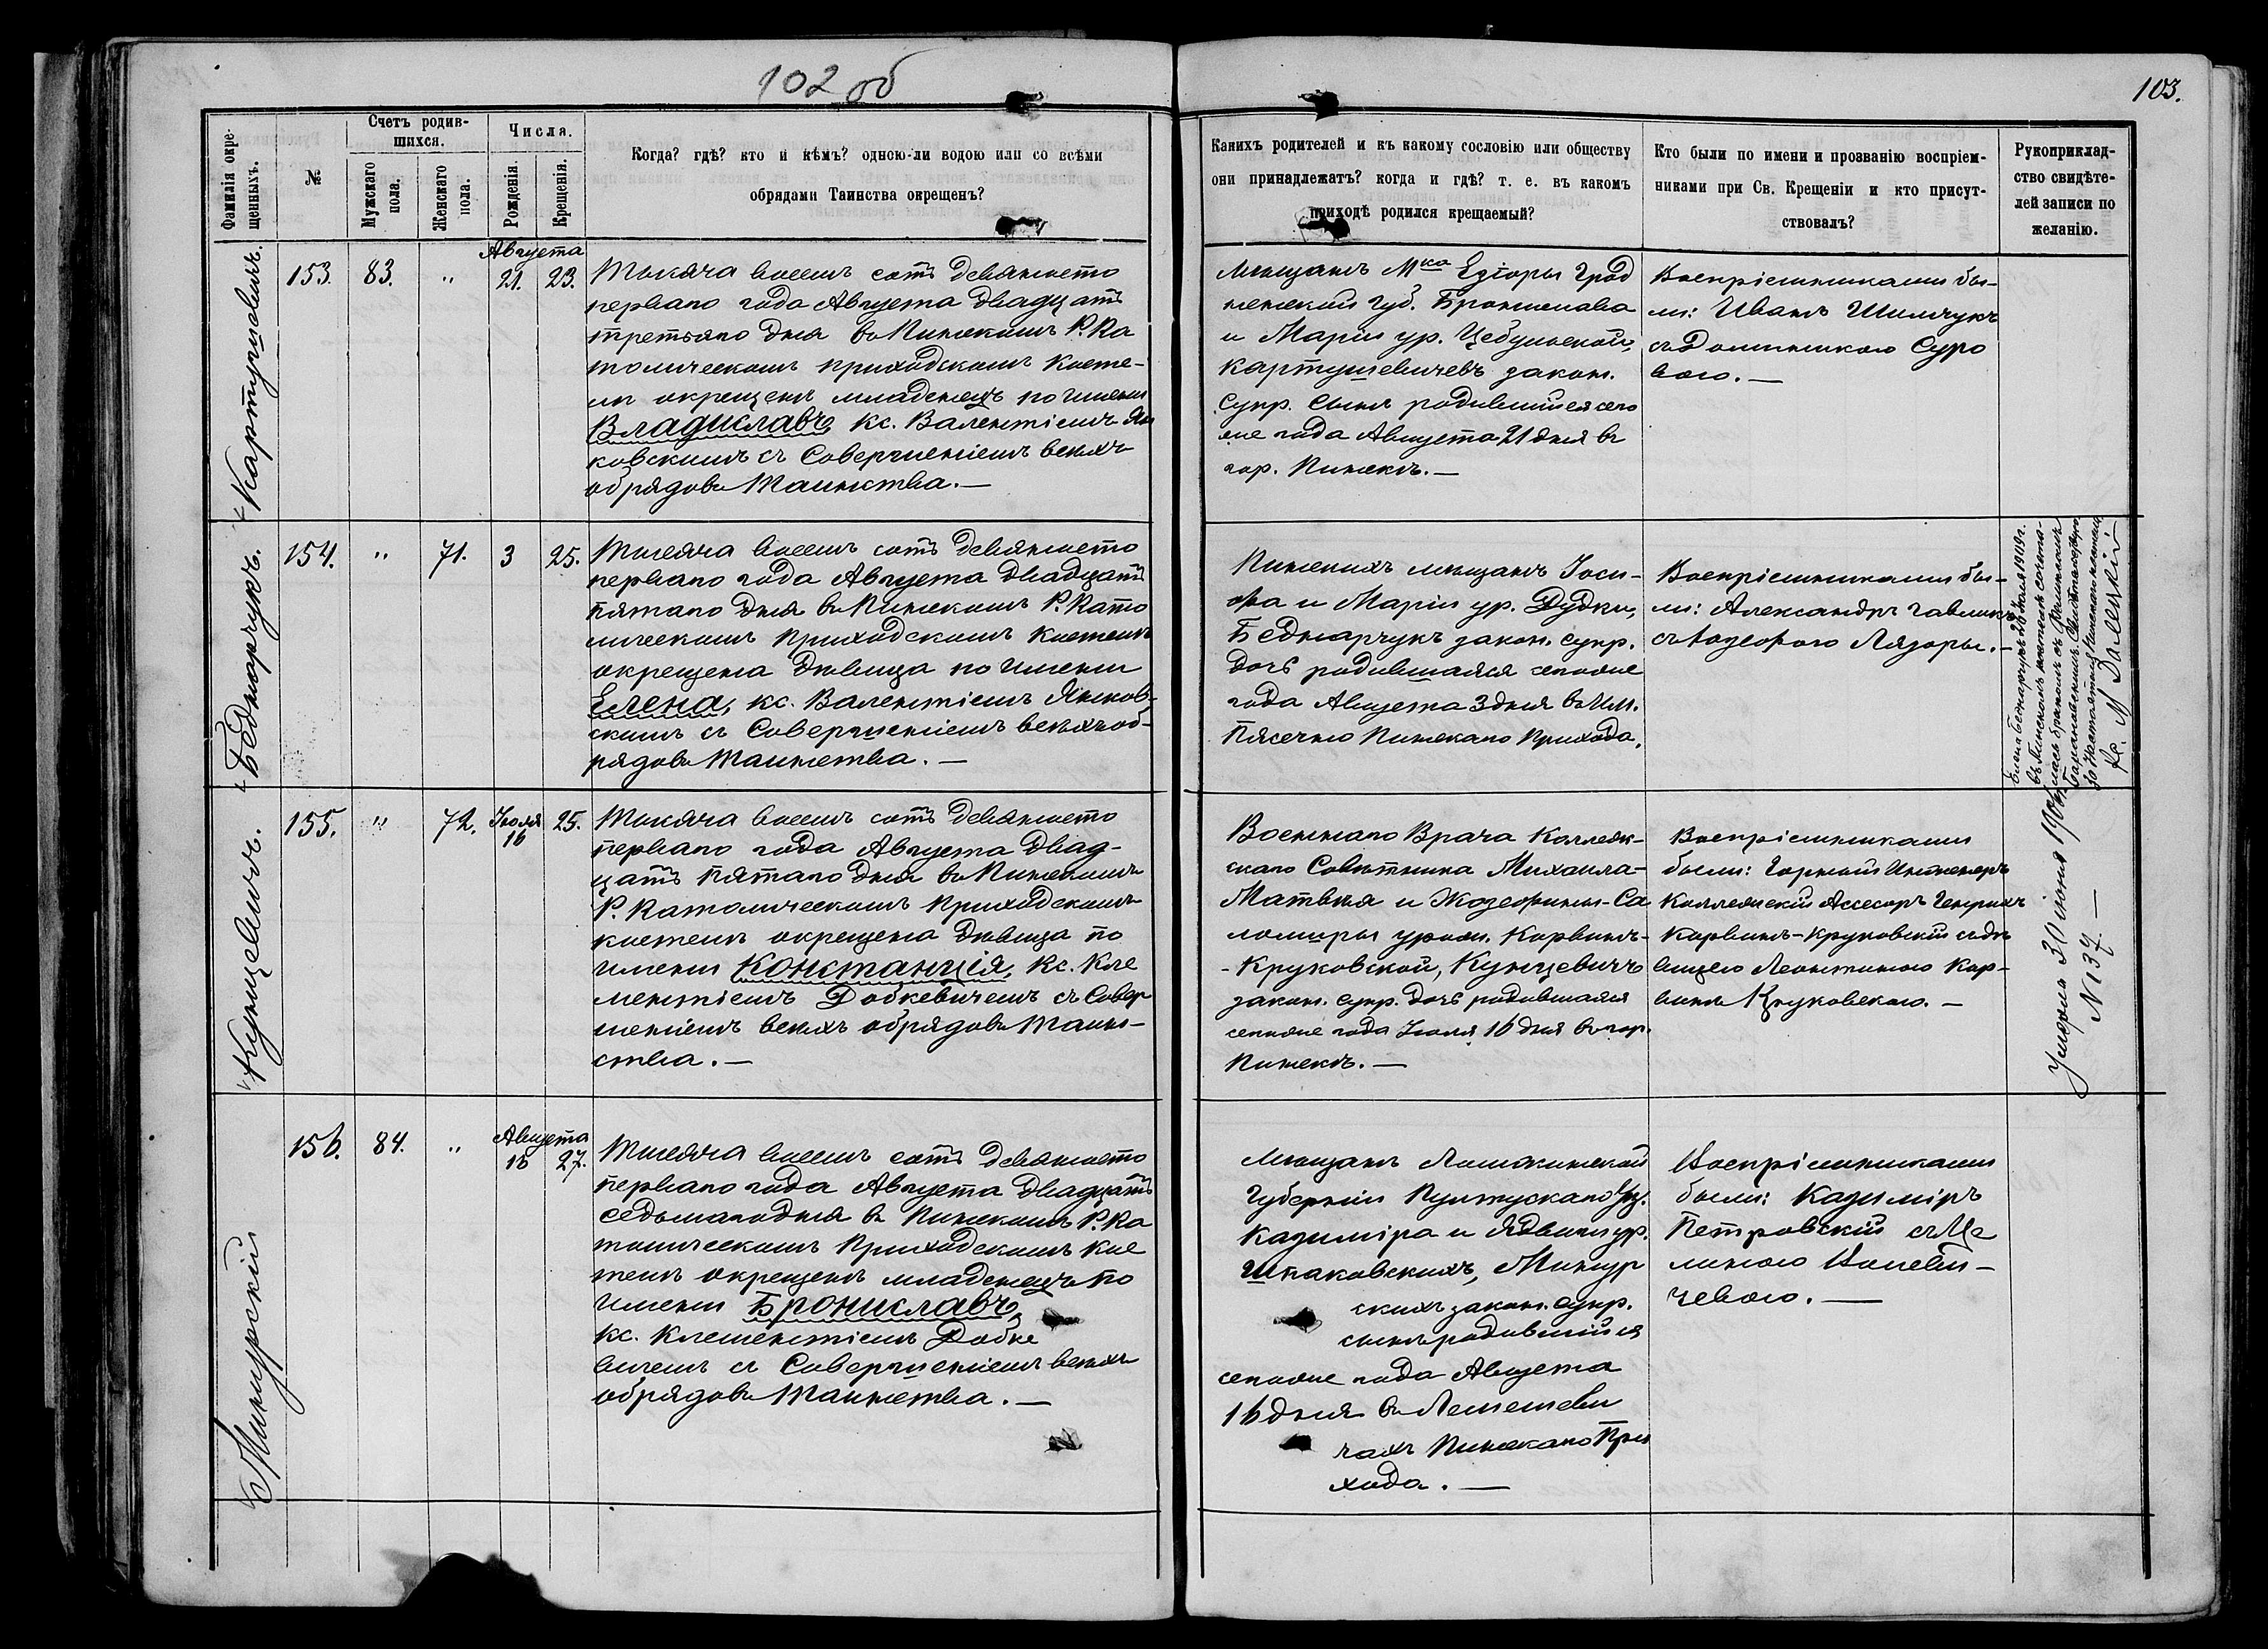 102 об
103.
Фамилія окре-
щенныхъ.
№
Счетъ родив-
шихся.
Мужскаго
пола.
Женскаго
пола.
Числа.
Рожденія.
Крещенія.
Когда? гдѣ? кто и кѣмъ? одною-ли водою или со всѣми
обрядами Таинства окрещенъ?
Какихъ родителей и къ какому сословію или обществу
они принадлежатъ? когда и гдѣ? т. е. въ какомъ
приходѣ родился крещаемый?
Кто были по имени и прозванію воспріем-
никами при Св. Крещеніи и кто присут-
ствовалъ?
Рукоприклад-
ство свидѣте-
лей записи по
желанію.
Картушевичъ.
153.
83.
"
Августа
21. 23.
Тысяча восемъ сотъ девяносто
перваго года Августа двадцать
третьяго дня въ Пинскомъ Р. Ка
толическомъ приходскомъ косте-
лѣ окрещенъ младенецъ по имени
Владиславъ, кс. Валентіемъ Ян
ковскимъ съ совершеніемъ всѣхъ
обрядовъ Таинства. —
Мѣщанъ Мка Езіоры Грод
ненской Губ. Бронислава
и Маріи ур. Цебульской,
Картушевичевъ закон.
Супр. Сынъ родившійся сего
же года Августа 21 дня въ
гор. Пинскѣ. —
Воспріемниками бы-
ли: Иванъ Шимчукъ
съ Доминикою Суро
вою. —
Беднарчукъ.
154.
"
71.
3
25.
Тысяча восемъ сотъ девяносто
перваго года Августа двадцать
пятаго дня въ Пинскомъ Р. Като
лическомъ Приходскомъ Костелѣ
окрещена дѣвица по имени
Елена, кс. Валентіемъ Янков-
скимъ съ Совершеніемъ всѣхъ об-
рядовъ Таинства. —
Пинскихъ мѣщанъ Іоси-
фа и Маріи ур. Дудки,
Беднарчукъ закон. супр.
дочь родившаяся сего же
года Августа 3 дня въ им.
Пясечно Пинскаго Прихода.
Воспріемниками бы-
ли: Александръ Гавлик
съ Юзефою Лязоры. —
Елена Беднарчукъ
въ Пинскомъ костелѣ сочета-
лась бракомъ съ
Кс. М
Кунцевичъ.
155.
"
72.
Іюля
16
25.
Тысяча восемъ сотъ девяносто
перваго года Августа двад-
цать пятаго дня въ Пинскомъ
Р. Католическомъ Приходскомъ
костелѣ окрещена дѣвица по
имени Констанція, Кс. Кле
ментіемъ Добкевичемъ съ Совер
шеніемъ всѣхъ обрядовъ Таин-
ства. —
Военнаго Врача Коллеж-
скаго Совѣтника Михаила-
Матвѣя и Жозефины-Са
ломиры урож. Корвинъ-
-Круковской, Кунцевичъ
закон. супр. дочь родившаяся
сего же года Іюля 16 дня въ гор.
Пинскѣ. —
Воспріемниками
были: Горный Инженеръ
Коллежскій Ассесоръ Генрихъ
Корвинъ-Круковскій съ дѣ
вицею Леонтиною Кор-
винъ Круковскою. —
Умерла 30 июня
N 37. —
Минурскій
156.
84.
"
Августа
16 27.
Тысяча восемъ сотъ девяносто
перваго года Августа двадцать
седьмаго дня въ Пинскомъ Р. Ка
толическомъ Приходскомъ Кос
телѣ окрещенъ младенецъ по
имени Брониславъ,
кс. Клементіемъ Добке
вичемъ съ Совершеніемъ всѣхъ
обрядовъ Таинства. —
Мѣщанъ Ломжинской
Губерніи Пултускаго Уѣз.
Казиміра и Ядвиги ур.
Шпаковскихъ, Минур
скихъ закон. супр.
сынъ родившійся
сего же года Августа
16 дня въ Лемешеви
чахъ Пинскаго При
хода. —
Воспріемниками
были: Казиміръ
Петровскій съ Це
линою
чевою. —